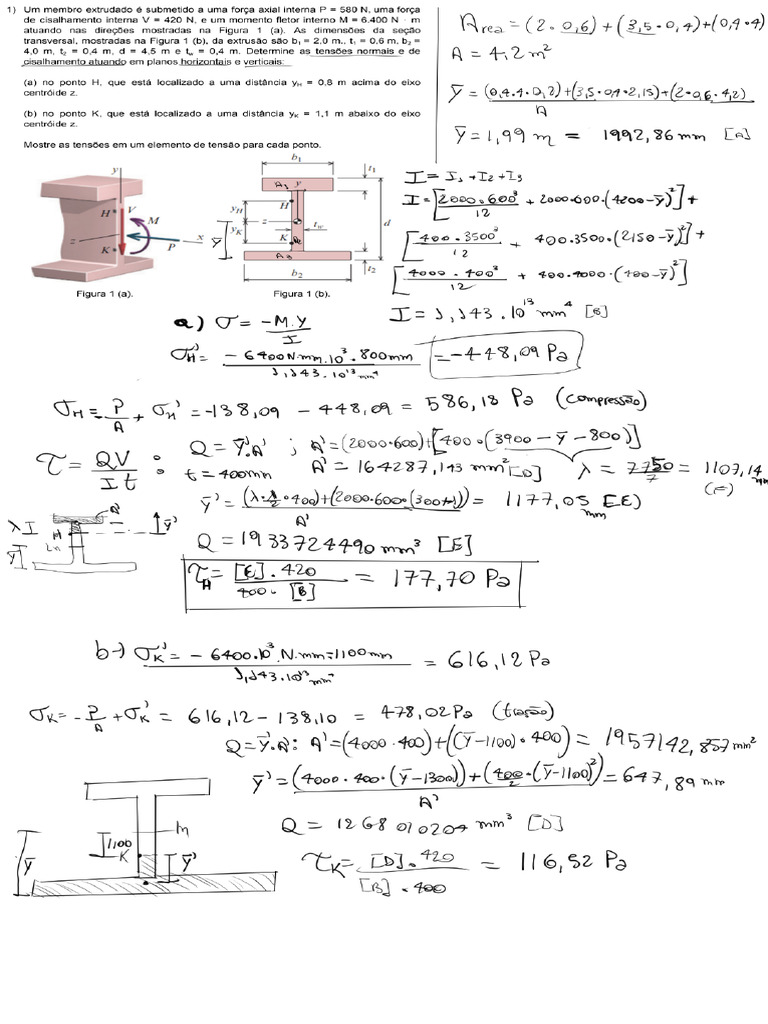 1) Um membro extrudado é submetido a uma força axial interna P = 580 N, uma força
de cisalhamento interna V = 420 N, e um momento fletor interno M = 6.400 N · m
atuando nas direções mostradas na Figura 1 (a). As dimensões da seção
transversal, mostradas na Figura 1 (b), da extrusão são b₁ = 2,0 m,. t₁ = 0,6 m, b₂ =
4,0 m, t₂ = 0,4 m, d = 4,5 m e tw = 0,4 m. Determine as tensões normais e de
cisalhamento atuando em planos horizontais e verticais:
(a) no ponto H, que está localizado a uma distância yH = 0,8 m acima do eixo
centróide z.
(b) no ponto K, que está localizado a uma distância yK = 1,1 m abaixo do eixo
centróide z.
Mostre as tensões em um elemento de tensão para cada ponto.
Area = (2·0,6) + (3,5·0,4) + (0,4·4)
A = 4,2 m²
ȳ = (0,4·4·0,2)+(3,5·0,4·2,15)+(2·0,6·4,2)
A
ȳ = 1,99 m = 1992,86 mm [A]
y
H
V
M
z
x
K
P
Figura 1 (a).
b₁
A₁
y
t₁
H
yH
z
tw
d
yK
ȳ
K
A₂
A₃
t₂
b₂
Figura 1 (b).
I = I₁ + I₂ + I₃
I = [2000·600³/12 + 2000·600·(4200-ȳ)²] +
[400·3500³/12 + 400·3500·(2150-ȳ)²] +
[4000·400³/12 + 400·4000·(400-ȳ)²]
I = 1,143·10¹³ mm⁴ [B]
a) σ = -M·y/I
σH' = -6400 N·mm·10³·800mm / 1,143·10¹³ mm⁴ = -448,09 Pa
σH = P/A + σH' = -138,09 - 448,09 = 586,18 Pa (compressão)
τ = QV/It :
Q = ȳ'·A' ; A' = (2000·600)+[400·(3900-ȳ-800)]
t = 400mm
A' = 164287,143 mm² [D]
λ = 7750/7 = 1107,14 mm
ȳ' = (λ·λ/2·400)+(2000·600·(300+λ)) / A' = 1177,05 [E]
mm
λ
A'
ȳ'
H
Ln
ȳ
Q = 1933724490 mm³ [E]
τH = [E]·420 / 400·[B] = 177,70 Pa
b-) σK' = -6400·10³·N·mm·1100mm / 1,143·10¹³ mm⁴ = 616,12 Pa
σK = -P/A + σK' = 616,12 - 138,10 = 478,02 Pa (tração)
Q = ȳ'·A' : A' = (4000·400)+((ȳ-1100)·400) = 1957142,857 mm²
ȳ' = (4000·400·(ȳ-1300))+(400/2·(ȳ-1100)²) / A' = 647,89 mm
Q = 1268010204 mm³ [D]
τK = [D]·420 / [B]·400 = 116,52 Pa
1100
K
ȳ
ȳ'